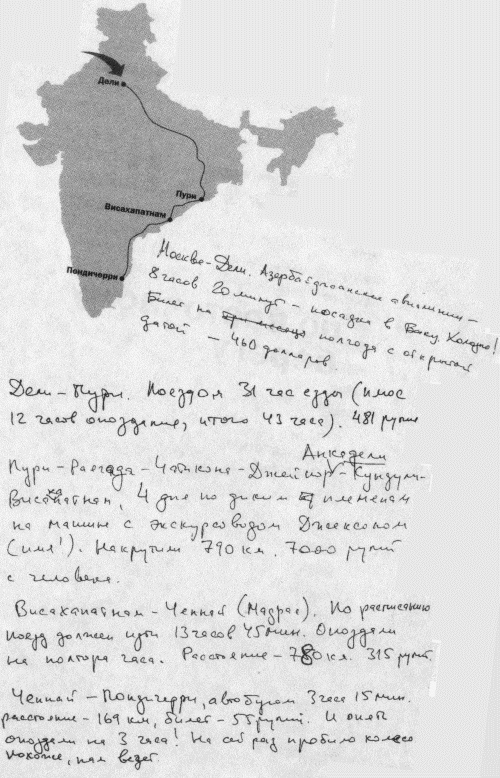 Дели
Пури
Висахапатнам
Пондичерри
Москва-Дели. Азербайджанские авиалинии -
8 часов 20 минут - посадка в Баку. Холодно!
Билет на три месяца полгода с открытой
датой - 460 долларов.
Дели-Пури. Поездом 31 час езды (плюс
12 часов опоздание, итого 43 часа). 481 рупия
Анкадели
Пури-Раегада-Чатикона-Джейпор-Кундули-
Висакхапатнам, 4 дня по диким племенам
на машине с экскурсоводом Джексоном
(имя!). Накрутили 790 км. 7000 рупий
с человека.
Висахапатнам-Ченнай (Мадрас). По расписанию
поезд должен идти 13 часов 45 мин. Опоздали
на полтора часа. Расстояние - 780 км. 315 рупий.
Ченнай-Пондичерри, автобусом 3 часа 15 мин.
расстояние - 169 км, билет - 55 рупий. И опять
опоздали на 3 часа! На сей раз пробило колесо
похоже, нам везет.